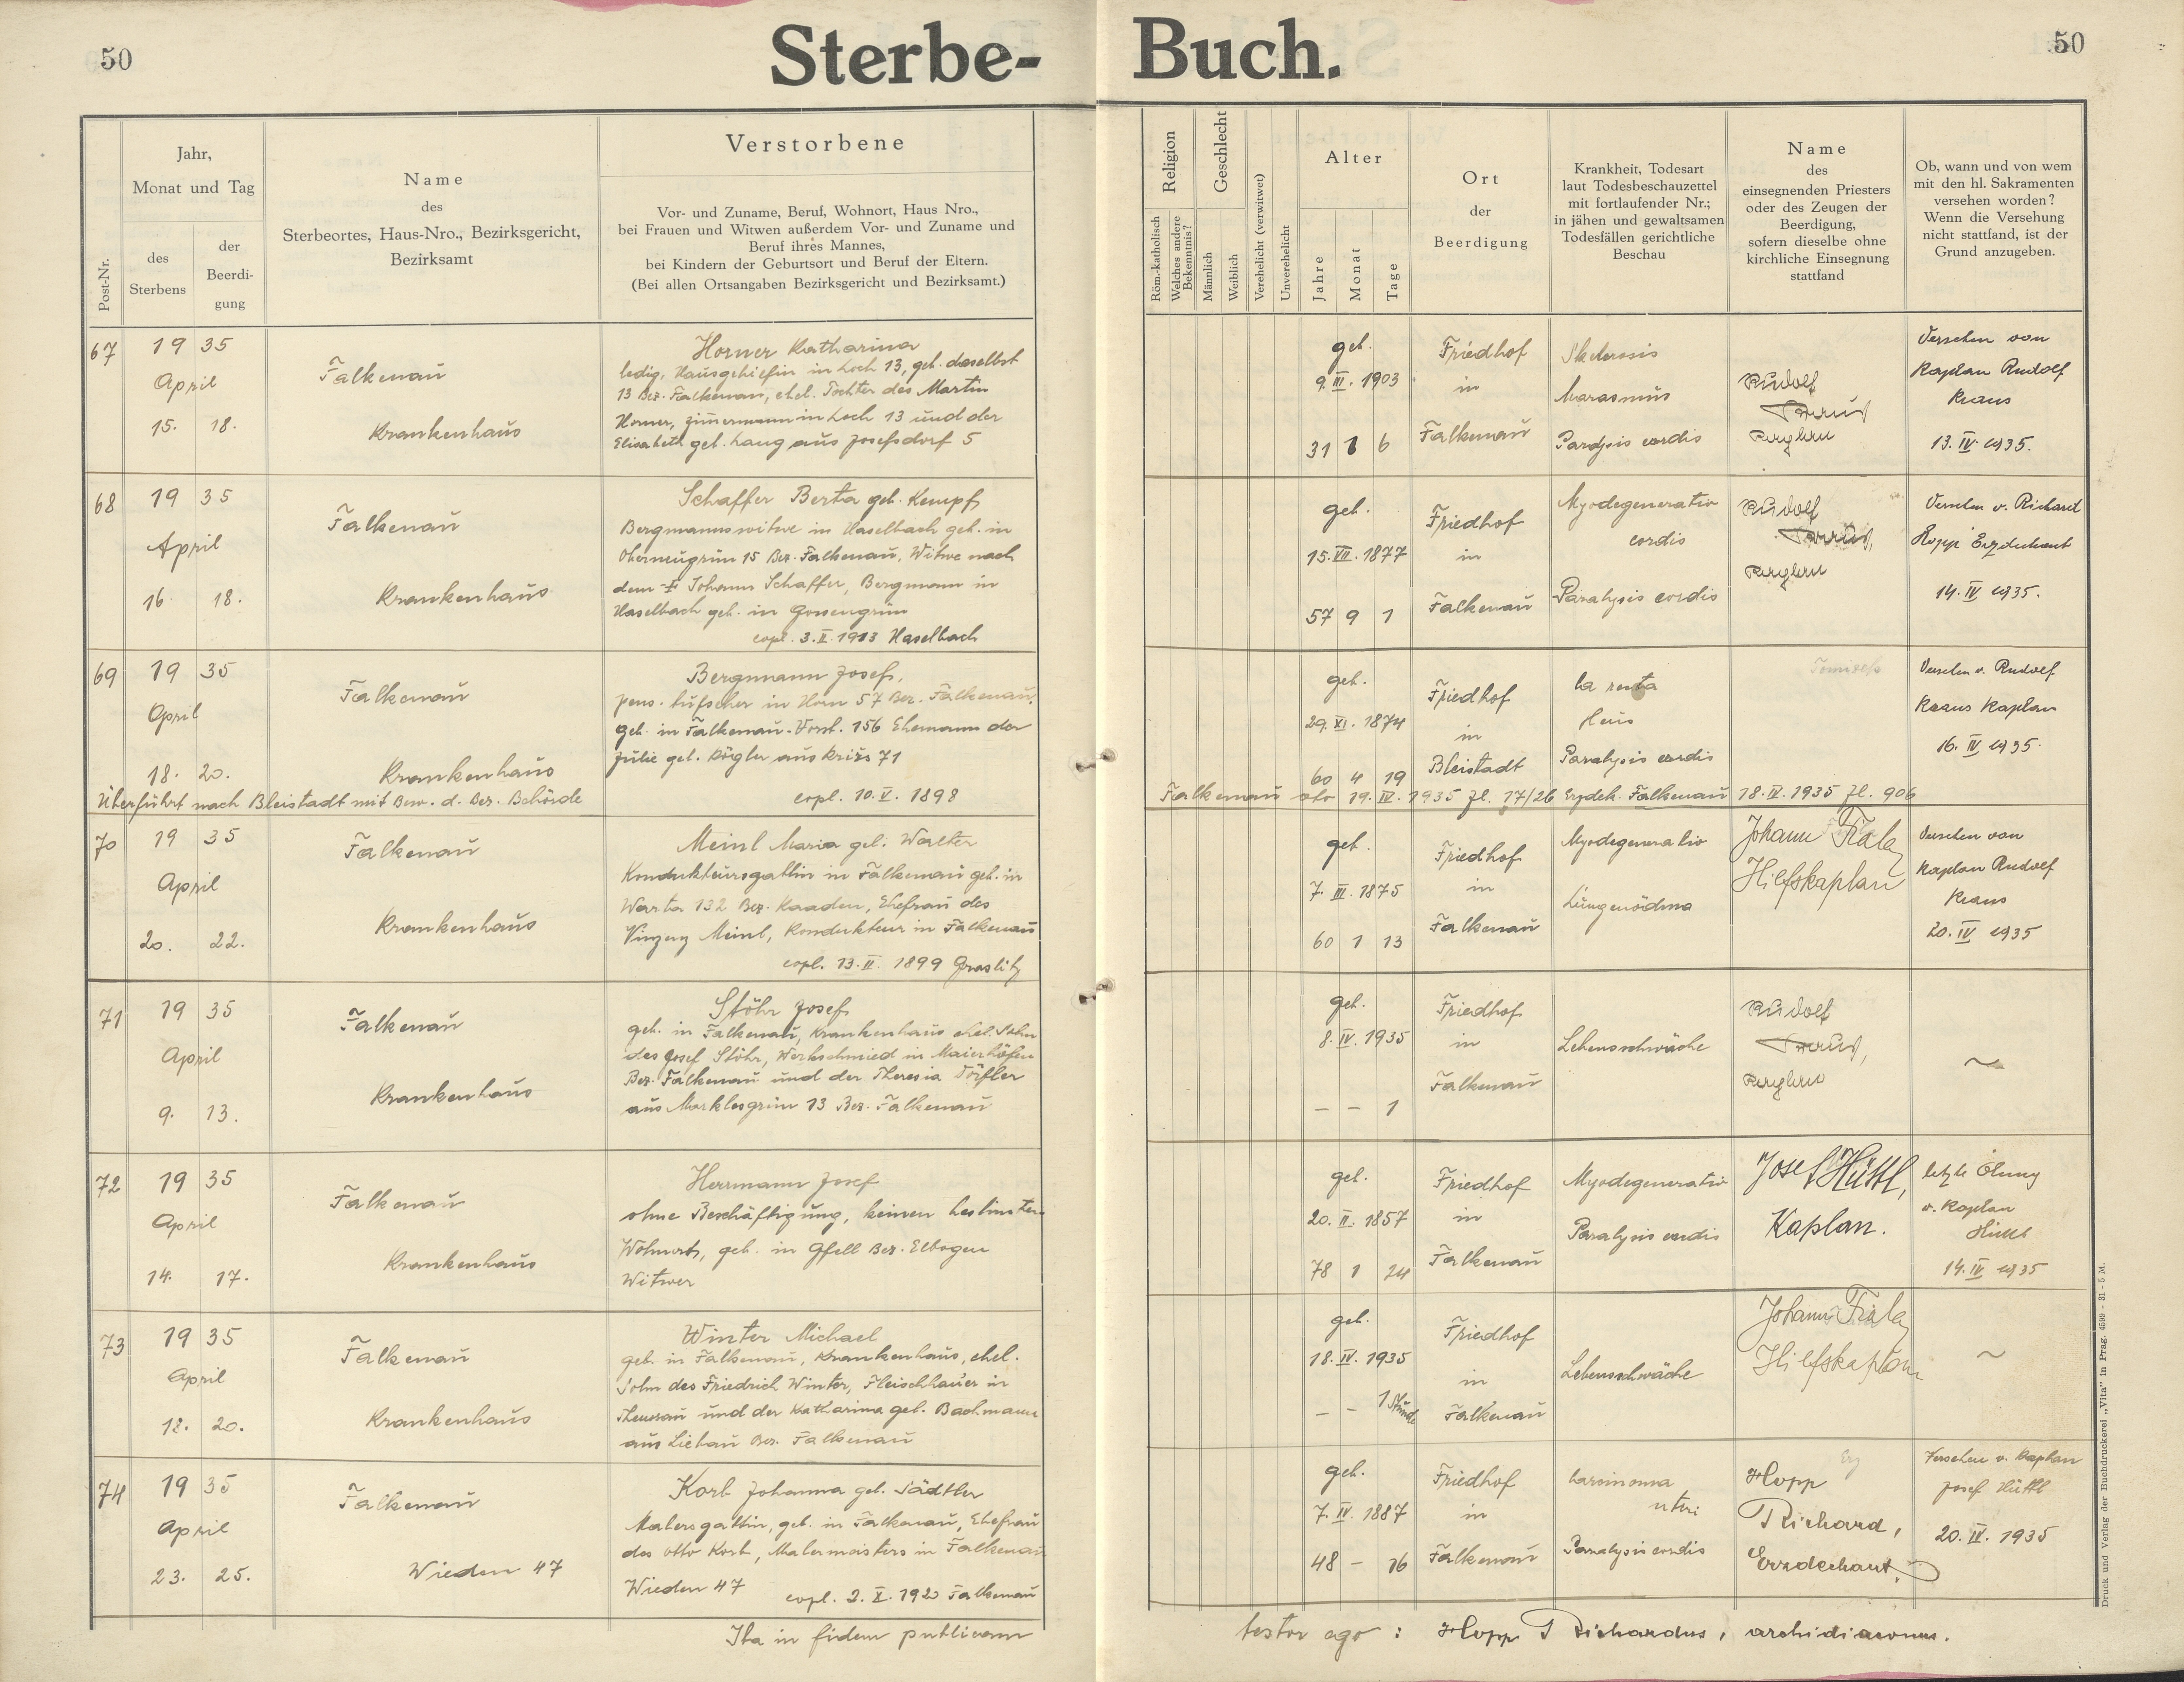 50
Sterbe-Buch.
50
Post-Nr.
Jahr,
Monat und Tag
des
Sterbens
der
Beerdi-
gung
Name
des
Sterbeortes, Haus-Nro., Bezirksgericht,
Bezirksamt
Verstorbene
Vor- und Zuname, Beruf, Wohnort, Haus Nro.,
bei Frauen und Witwen außerdem Vor- und Zuname und
Beruf ihres Mannes,
bei Kindern der Geburtsort und Beruf der Eltern.
(Bei allen Ortsangaben Bezirksgericht und Bezirksamt.)
Religion
Röm.-katholisch
Welches andere
Bekenntnis?
Geschlecht
Männlich
Weiblich
Verehelicht (verwitwet)
Unverehelicht
Alter
Jahre
Monat
Tage
Ort
der
Beerdigung
Krankheit, Todesart
laut Todesbeschauzettel
mit fortlaufender Nr.;
in jähen und gewaltsamen
Todesfällen gerichtliche
Beschau
Name
des
einsegnenden Priesters
oder des Zeugen der
Beerdigung,
sofern dieselbe ohne
kirchliche Einsegnung
stattfand
Ob, wann und von wem
mit den hl. Sakramenten
versehen worden?
Wenn die Versehung
nicht stattfand, ist der
Grund anzugeben.
67
19 35
April
15. 18.
Falkenau
Krankenhaus
Horner Katharina
ledig, Hausgehilfin in Loch 13, geb. daselbst
13 Bez. Falkenau, ehel. Tochter des Martin
Horner, Zimmermann in Loch 13 und der
Elisabeth geb. Lang aus Josefsdorf 5
geb.
9. III. 1903
31 1 6
Friedhof
in
Falkenau
Sklerosis
Marasmus
Paralysis cordis
Rudolf
Versehen von
Kaplan Rudolf
Kraus
13. IV. 1935.
68
19 35
April
16. 18.
Falkenau
Krankenhaus
Schaffer Berta geb. Kempf
Bergmannswitwe in Haselbach geb. in
Oberneugrün 15 Bez. Falkenau, Witwe nach
dem † Johann Schaffer, Bergmann in
Haselbach geb. in Gossengrün
copl. 3. II. 1913 Haselbach
geb.
15. VII. 1877
57 9 1
Friedhof
in
Falkenau
Myodegeneratio
cordis
Paralysis cordis
Rudolf
Versehen v. Richard
Hopp Erzdechant
14. IV. 1935.
69
19 35
April
18. 20.
Falkenau
Krankenhaus
Bergmann Josef,
pens. in Horn 57 Bez. Falkenau,
geb. in Falkenau-Vorst. 156 Ehemann der
Julie geb. Kögler aus 71
copl. 10. V. 1898
geb.
29. XI. 1874
60 4 19
Friedhof
in
Bleistadt
Paralysis cordis
Versehen v. Rudolf
Kraus Kaplan
16. IV. 1935.
Überführt nach Bleistadt mit Bew. d. Bez. Behörde Falkenau dto 19. IV. 1935 Zl. 17/26 Erzdek. Falkenau 18. IV. 1935 Zl. 906
70
19 35
April
20. 22.
Falkenau
Krankenhaus
Meinl Maria geb. Walter
Kondukteursgattin in Falkenau geb. in
Warta 132 Bez. Kaaden, Ehefrau des
Vinzenz Meinl, Kondukteur in Falkenau
copl. 13. II. 1899 Graslitz
geb.
7. III. 1875
60 1 13
Friedhof
in
Falkenau
Myodegeneratio
Lungenödma
Johann
Hilfskaplan
Versehen von
Kaplan Rudolf
Kraus
20. IV. 1935
71
19 35
April
9. 13.
Falkenau
Krankenhaus
Stöhr Josef
geb. in Falkenau, Krankenhaus ehel. Sohn
des Josef Stöhr, Werkschmied in Maierhöfen
Bez. Falkenau und der Theresia Dörfler
aus Marklesgrün 13 Bez. Falkenau
geb.
8. IV. 1935
– – 1
Friedhof
in
Falkenau
Lebensschwäche
Rudolf
~
72
19 35
April
14. 17.
Falkenau
Krankenhaus
Herrmann Josef
ohne Beschäftigung, keinen bestimmten
Wohnort, geb. in Gfell Bez. Elbogen
Witwer
geb.
20. II. 1857
78 1 24
Friedhof
in
Falkenau
Myodegeneratio
Paralysis cordis
Josef Hüttl,
Kaplan.
letzte Ölung
v. Kaplan
Hüttl
14. IV. 1935
73
19 35
April
18. 20.
Falkenau
Krankenhaus
Winter Michael
geb. in Falkenau, Krankenhaus, ehel.
Sohn des Friedrich Winter, Fleischhauer in
Theussau und der Katharina geb. Bachmann
aus Liebau Bez. Falkenau
geb.
18. IV. 1935
– – 1 Stunde
Friedhof
in
Falkenau
Lebensschwäche
Johann
Hilfskaplan
~
74
19 35
April
23. 25.
Falkenau
Wieden 47
Korb Johanna geb. Sädtler
Malersgattin, geb. in Falkenau, Ehefrau
des Otto Korb, Malermeisters in Falkenau
Wieden 47 copl. 2. X. 1920 Falkenau
geb.
7. IV. 1887
48 – 16
Friedhof
in
Falkenau
Carcinoma
uteri
Paralysis cordis
Hopp
Richard,
Erzdechant.
Versehen v. Kaplan
Josef Hüttl
20. IV. 1935
Ita in fidem publicam testor ego : Hopp Richardus, archidiaconus.
Druck und Verlag der Buchdruckerei „Vita" in Prag. 4599 - 31 - 5 M.